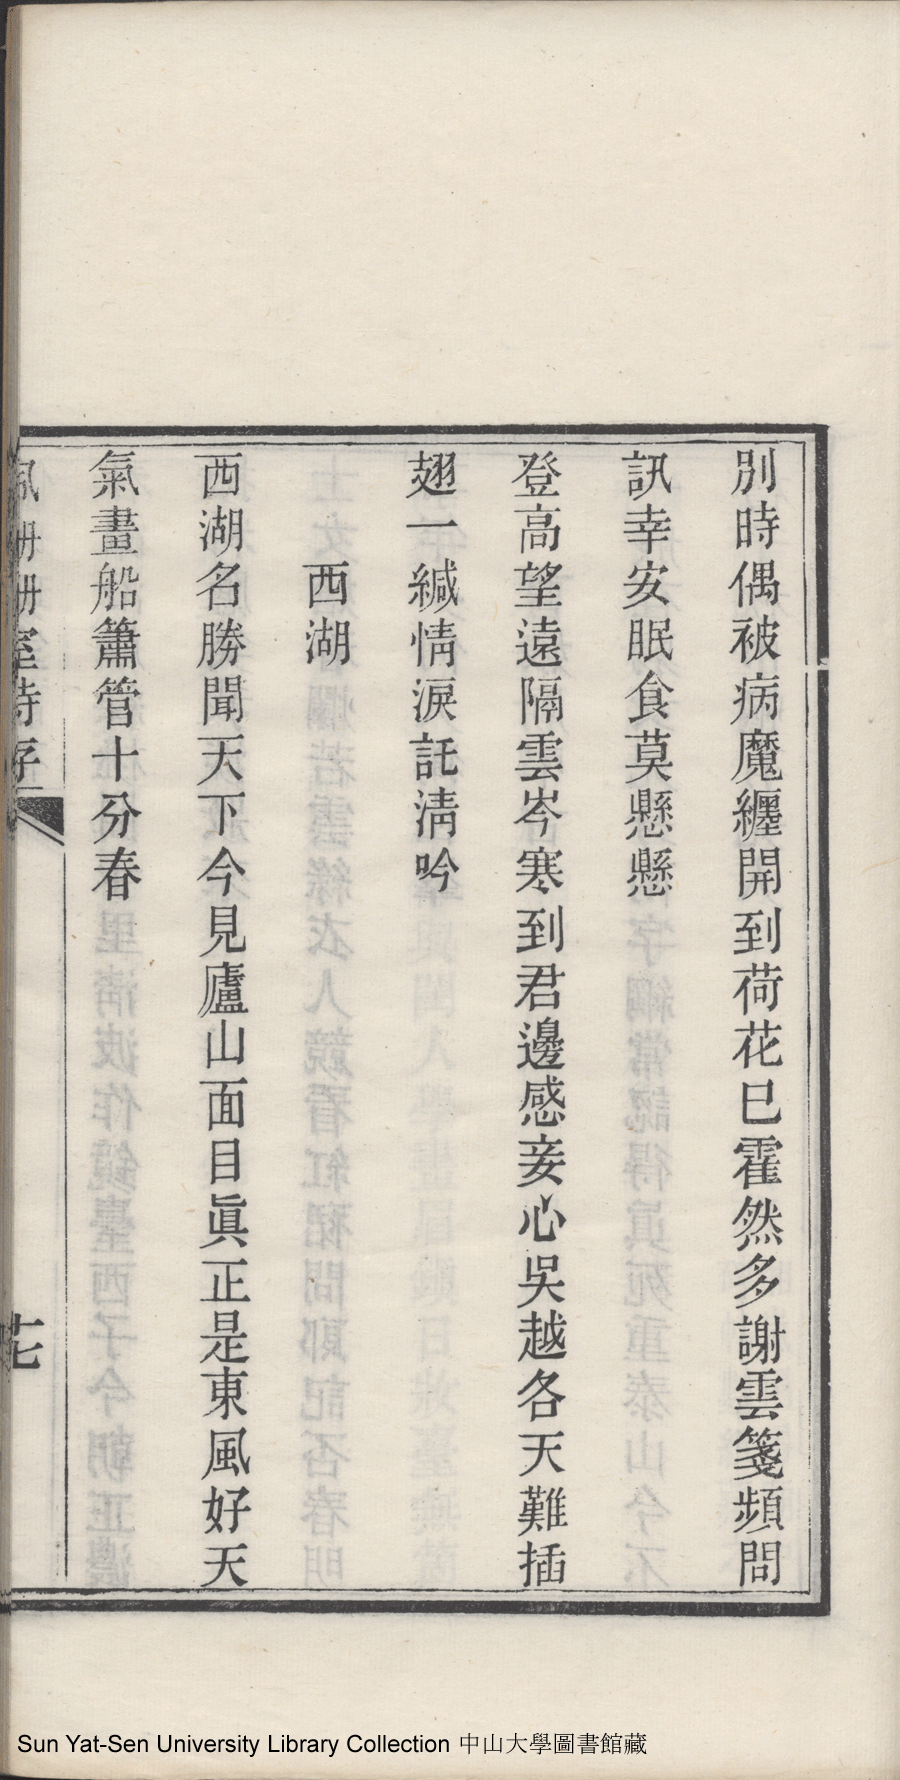 別時偶被病魔纏開到荷花巳霍然多謝雲箋頻問
訊幸安眠食莫懸懸
登高望遠隔雲岑寒到君邊感妾心吳越各天難插
翅一緘情淚託淸吟
西湖
西湖名勝聞天下今見廬山面目眞正是東風好天
氣畫船簫管十分春
珊珊室詩存
十七
Sun Yat-Sen University Library Collection 中山大學圖書館藏